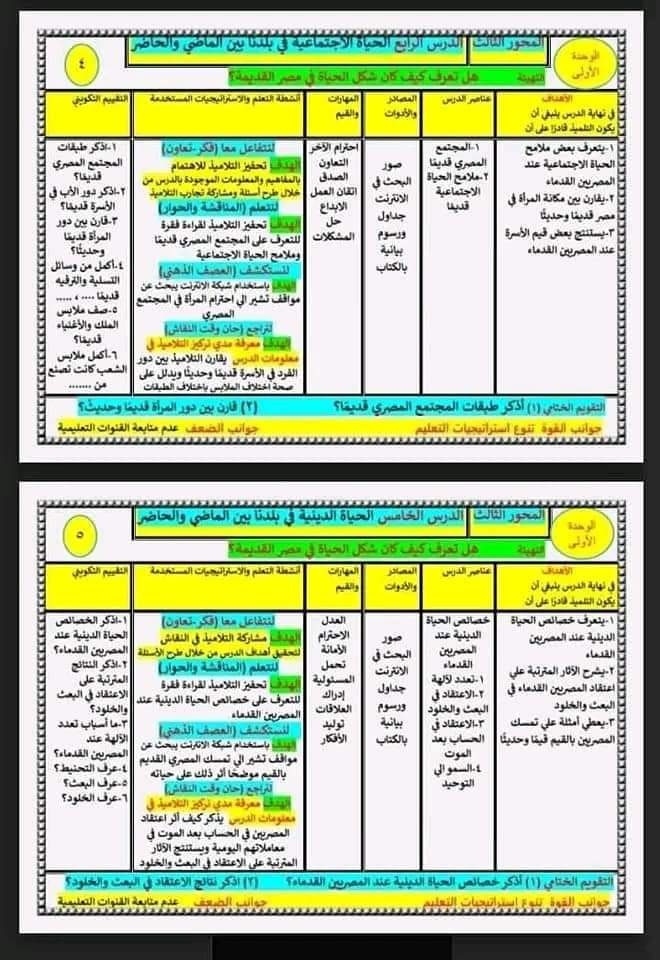 الوحدة الأولى
المحور الثالث الدرس الرابع الحياة الاجتماعية في بلدنا بين الماضي والحاضر
٤
التهيئة هل تعرف كيف كان شكل الحياة في مصر القديمة؟
الأهداف
في نهاية الدرس ينبغي أن
يكون التلميذ قادرًا على أن
عناصر الدرس
المصادر
والأدوات
المهارات
والقيم
أنشطة التعلم والاستراتيجيات المستخدمة
التقييم التكويني
١-يتعرف بعض ملامح
الحياة الاجتماعية عند
المصريين القدماء
٢-يقارن بين مكانة المرأة في
مصر قديمًا وحديثًا
٣-يستنتج بعض قيم الأسرة
عند المصريين القدماء
١-المجتمع
المصري قديمًا
٢-ملامح الحياة
الاجتماعية
قديمًا
صور
البحث في
الانترنت
جداول
ورسوم
بيانية
بالكتاب
احترام الآخر
التعاون
الصدق
اتقان العمل
الإبداع
حل
المشكلات
لنتفاعل معا (فكر-تعاون)
الهدف تحفيز التلاميذ للاهتمام
بالمفاهيم والمعلومات الموجودة بالدرس من
خلال طرح أسئلة ومشاركة تجارب التلاميذ
لنتعلم (المناقشة والحوار)
الهدف تحفيز التلاميذ لقراءة فقرة
للتعرف على المجتمع المصري قديمًا
وملامح الحياة الاجتماعية
لنستكشف (العصف الذهني)
الهدف باستخدام شبكة الانترنت يبحث عن
مواقف تشير الي احترام المرأة في المجتمع
المصري
لنراجع (حان وقت النقاش)
الهدف معرفة مدي تركيز التلاميذ في
معلومات الدرس يقارن التلاميذ بين دور
الفرد في الأسرة قديمًا وحديثًا ويدلل على
صحة اختلاف الملابس باختلاف الطبقات
١-اذكر طبقات
المجتمع المصري
قديمًا؟
٢-اذكر دور الأب في
الأسرة قديمًا؟
٣-قارن بين دور
المرأة قديمًا
وحديثًا؟
٤-أكمل من وسائل
التسلية والترفيه
قديمًا .... ، .....
٥-صف ملابس
الملك والأغنياء
قديمًا؟
٦-أكمل ملابس
الشعب كانت تصنع
من .......
التقويم الختامي (١) أذكر طبقات المجتمع المصري قديمًا؟ (٢) قارن بين دور المرأة قديمًا وحديثً؟
جوانب القوة تنوع استراتيجيات التعليم جوانب الضعف عدم متابعة القنوات التعليمية
الوحدة الأولى
المحور الثالث الدرس الخامس الحياة الدينية في بلدنا بين الماضي والحاضر
٥
التهيئة هل تعرف كيف كان شكل الحياة في مصر القديمة؟
الأهداف
في نهاية الدرس ينبغي أن
يكون التلميذ قادرًا على أن
عناصر الدرس
المصادر
والأدوات
المهارات
والقيم
أنشطة التعلم والاستراتيجيات المستخدمة
التقييم التكويني
١-يتعرف خصائص الحياة
الدينية عند المصريين
القدماء
٢-يشرح الآثار المترتبة علي
اعتقاد المصريين القدماء في
البعث والخلود
٣-يعطي أمثلة علي تمسك
المصريين بالقيم قيمًا وحديثًا
خصائص الحياة
الدينية عند
المصريين
القدماء
١-تعدد لآلهة
٢-الاعتقاد في
البعث والخلود
٣-الاعتقاد في
الحساب بعد
الموت
٤-السمو الي
التوحيد
صور
البحث في
الانترنت
جداول
ورسوم
بيانية
بالكتاب
العدل
الاحترام
الأمانة
تحمل
المسئولية
إدراك
العلاقات
توليد
الأفكار
لنتفاعل معا (فكر-تعاون)
الهدف مشاركة التلاميذ في النقاش
لتحقيق أهداف الدرس من خلال طرح الأسئلة
لنتعلم (المناقشة والحوار)
الهدف تحفيز التلاميذ لقراءة فقرة
للتعرف على خصائص الحياة الدينية عند
المصريين القدماء
لنستكشف (العصف الذهني)
الهدف باستخدام شبكة الانترنت يبحث عن
مواقف تشير الي تمسك المصري القديم
بالقيم موضحًا أثر ذلك على حياته
لنراجع (حان وقت النقاش)
الهدف معرفة مدي تركيز التلاميذ في
معلومات الدرس يذكر كيف أثر اعتقاد
المصريين في الحساب بعد الموت في
معاملاتهم اليومية ويستنتج الآثار
المترتبة على الاعتقاد في البعث والخلود
١-اذكر الخصائص
الحياة الدينية عند
المصريين القدماء؟
٢-اذكر النتائج
المترتبة على
الاعتقاد في البعث
والخلود؟
٣-ما أسباب تعدد
الآلهة عند
المصريين القدماء؟
٤-عرف التحنيط؟
٥-عرف البعث؟
٦-عرف الخلود؟
التقويم الختامي (١) أذكر خصائص الحياة الدينية عند المصريين القدماء؟ (٢) اذكر نتائج الاعتقاد في البعث والخلود؟
جوانب القوة تنوع استراتيجيات التعليم جوانب الضعف عدم متابعة القنوات التعليمية